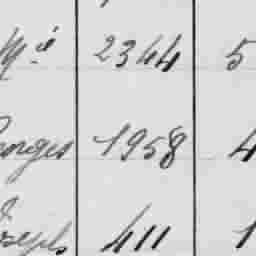 Mié 2344 5
Georges 1958 4
Joseph 411 1